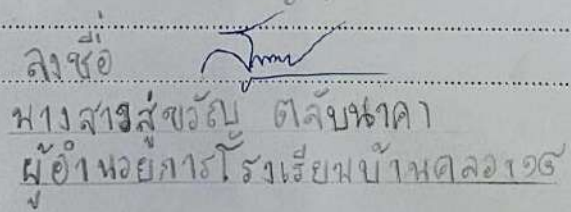 ลงชื่อ
นางสาวสู่ขวัญ ตลับนาคา
ผู้อำนวยการโรงเรียนบ้านคลอง๑๕